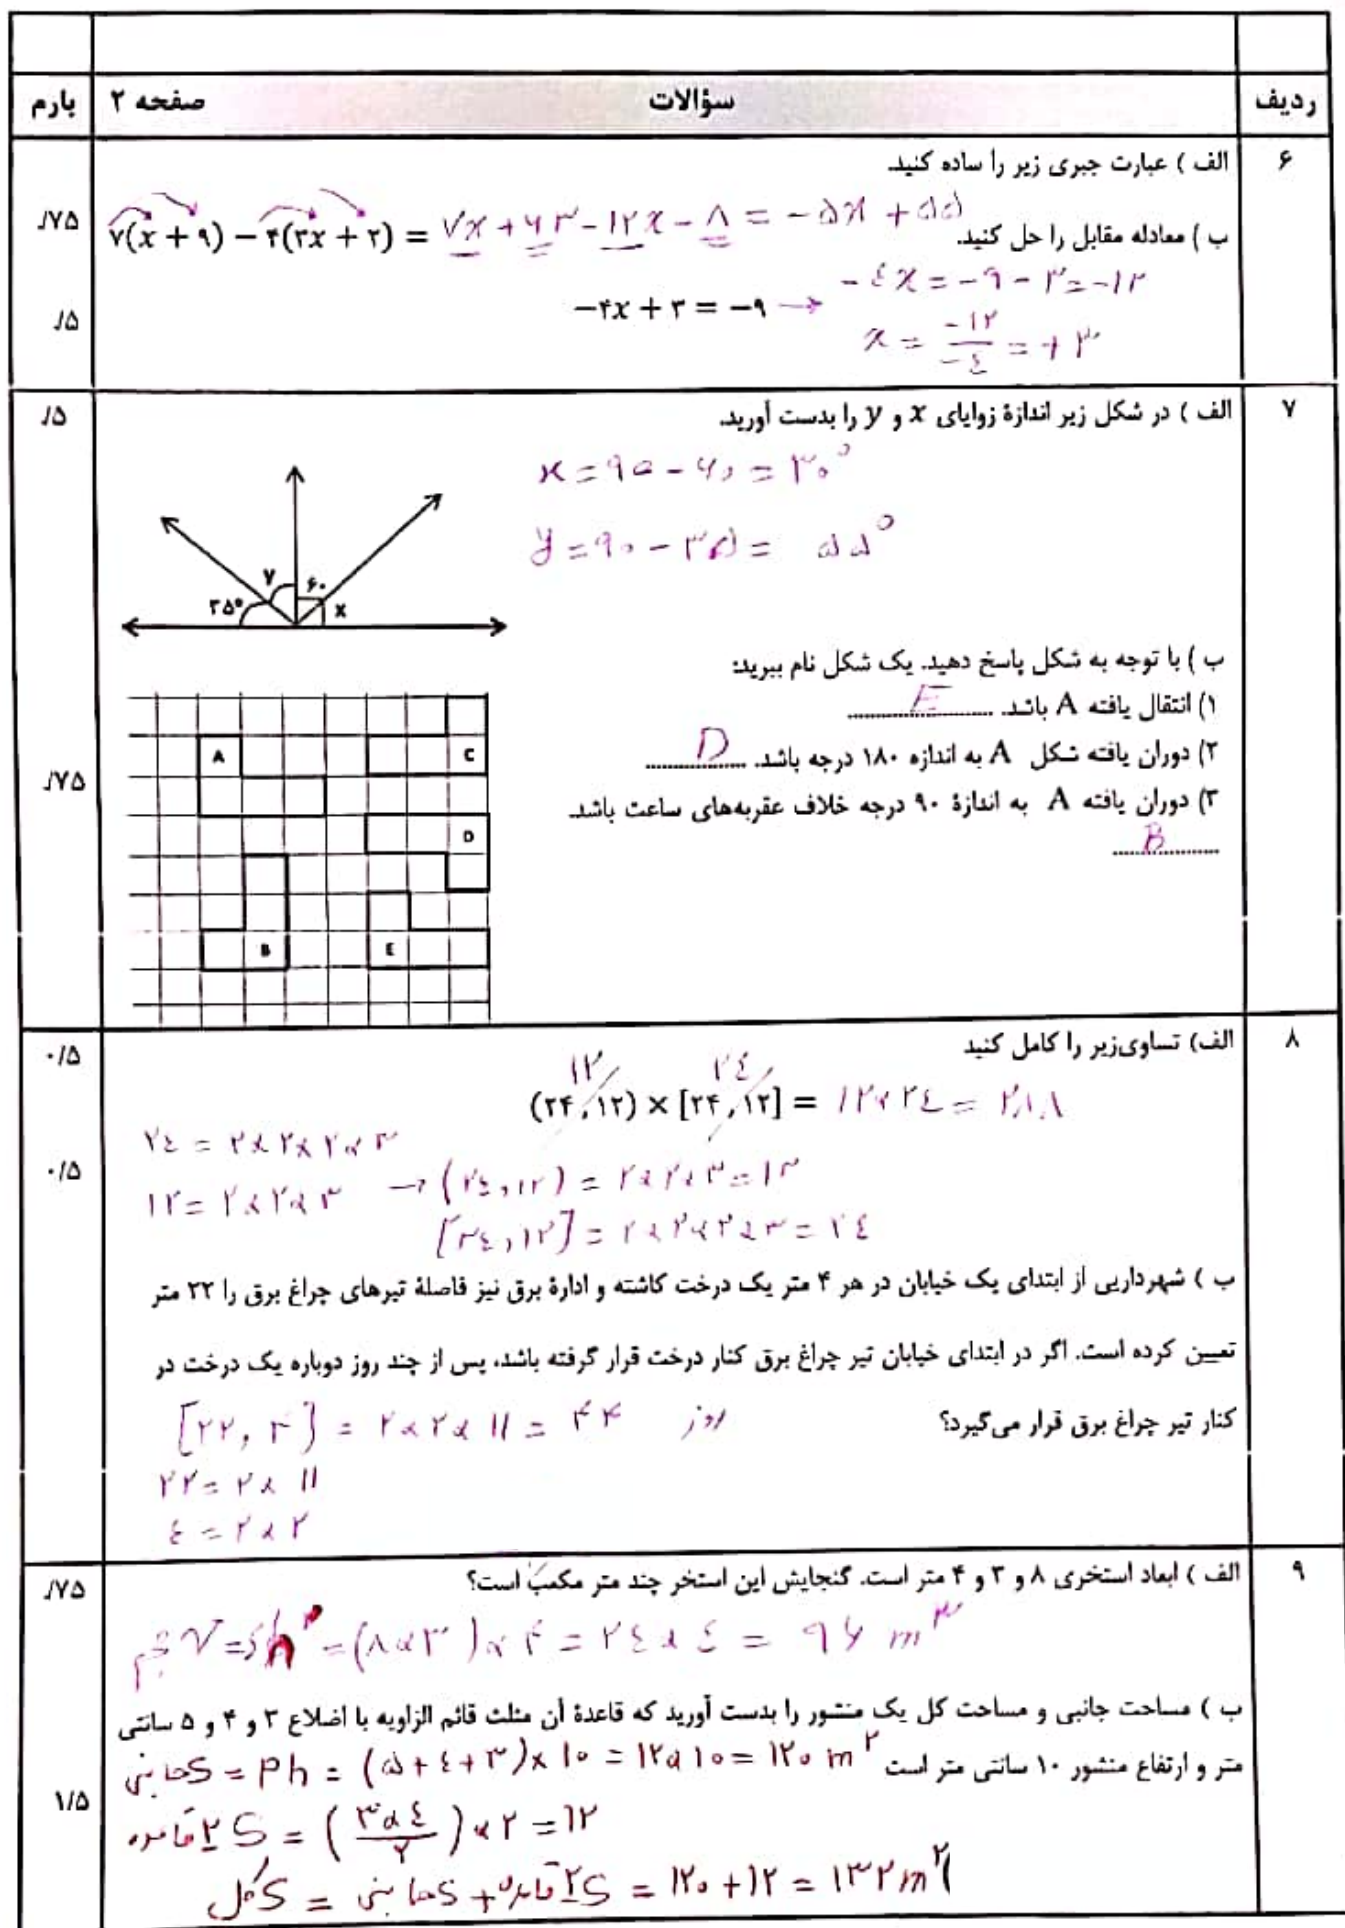 ردیف سؤالات صفحه ۲ بارم
۶ الف ) عبارت جبری زیر را ساده کنید.
۷(x + ۹) − ۴(۳x + ۲) = ۷x + ۶۳ − ۱۲x − ۸ = − ۵x + ۵۵ /۷۵
ب ) معادله مقابل را حل کنید.
−۴x + ۳ = −۹ → −٤x = −۹ − ۳ = −۱۲ /۵
x = −۱۲/−٤ = +۳
۷ الف ) در شکل زیر اندازهٔ زوایای x و y را بدست آورید. /۵
x = ۹۰ − ۶۰ = ۳۰°
y = ۹۰ − ۳۵ = ۵۵°
y ۶۰
۳۵° x
ب ) با توجه به شکل پاسخ دهید. یک شکل نام ببرید:
۱) انتقال یافته A باشد. E
۲) دوران یافته شکل A به اندازه ۱۸۰ درجه باشد. D
۳) دوران یافته A به اندازهٔ ۹۰ درجه خلاف عقربه‌های ساعت باشد. /۷۵
B
A C
D
B E
۸ الف) تساوی‌زیر را کامل کنید ۰/۵
۱۲ ۲٤
(۲۴,۱۲) × [۲۴,۱۲] = ۱۲×۲٤ = ۲۸۸
۲٤ = ۲×۲×۲×۳
۱۲ = ۲×۲×۳ → (۲٤,۱۲) = ۲×۲×۳ = ۱۲ ۰/۵
[۲٤,۱۲] = ۲×۲×۲×۳ = ۲٤
ب ) شهرداریی از ابتدای یک خیابان در هر ۴ متر یک درخت کاشته و ادارهٔ برق نیز فاصلهٔ تیرهای چراغ برق را ۲۲ متر
تعیین کرده است. اگر در ابتدای خیابان تیر چراغ برق کنار درخت قرار گرفته باشد، پس از چند روز دوباره یک درخت در
کنار تیر چراغ برق قرار می‌گیرد؟ [۲۲, ۴] = ۲×۲×۱۱ = ۴۴ روز
۲۲ = ۲×۱۱
٤ = ۲×۲
۹ الف ) ابعاد استخری ۸ و ۳ و ۴ متر است. گنجایش این استخر چند متر مکعب است؟ /۷۵
حجم V = Sh = (۸×۳)×۴ = ۲٤×٤ = ۹۶ m³
ب ) مساحت جانبی و مساحت کل یک منشور را بدست آورید که قاعدهٔ آن مثلث قائم الزاویه با اضلاع ۳ و ۴ و ۵ سانتی
متر و ارتفاع منشور ۱۰ سانتی متر است S جانبی = Ph = (۵+٤+۳)×۱۰ = ۱۲×۱۰ = ۱۲۰ m² ۱/۵
۲S قاعده = (۳×٤/۲)×۲ = ۱۲
S کل = S جانبی + ۲S قاعده = ۱۲۰+۱۲ = ۱۳۲ m²